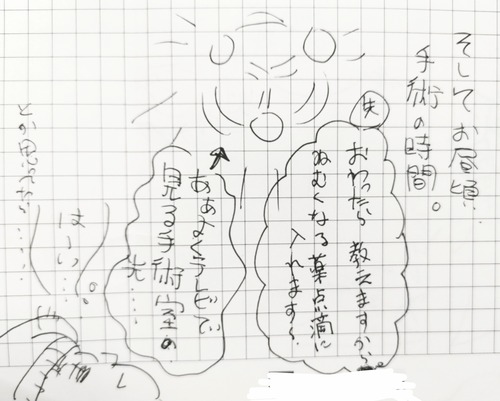 そして お昼頃…
手術の時間。
おわったら 教えますから。
ねむくなる薬点滴に
入れます〜
ああよくテレビで
見る手術室の
光……
はーい…。